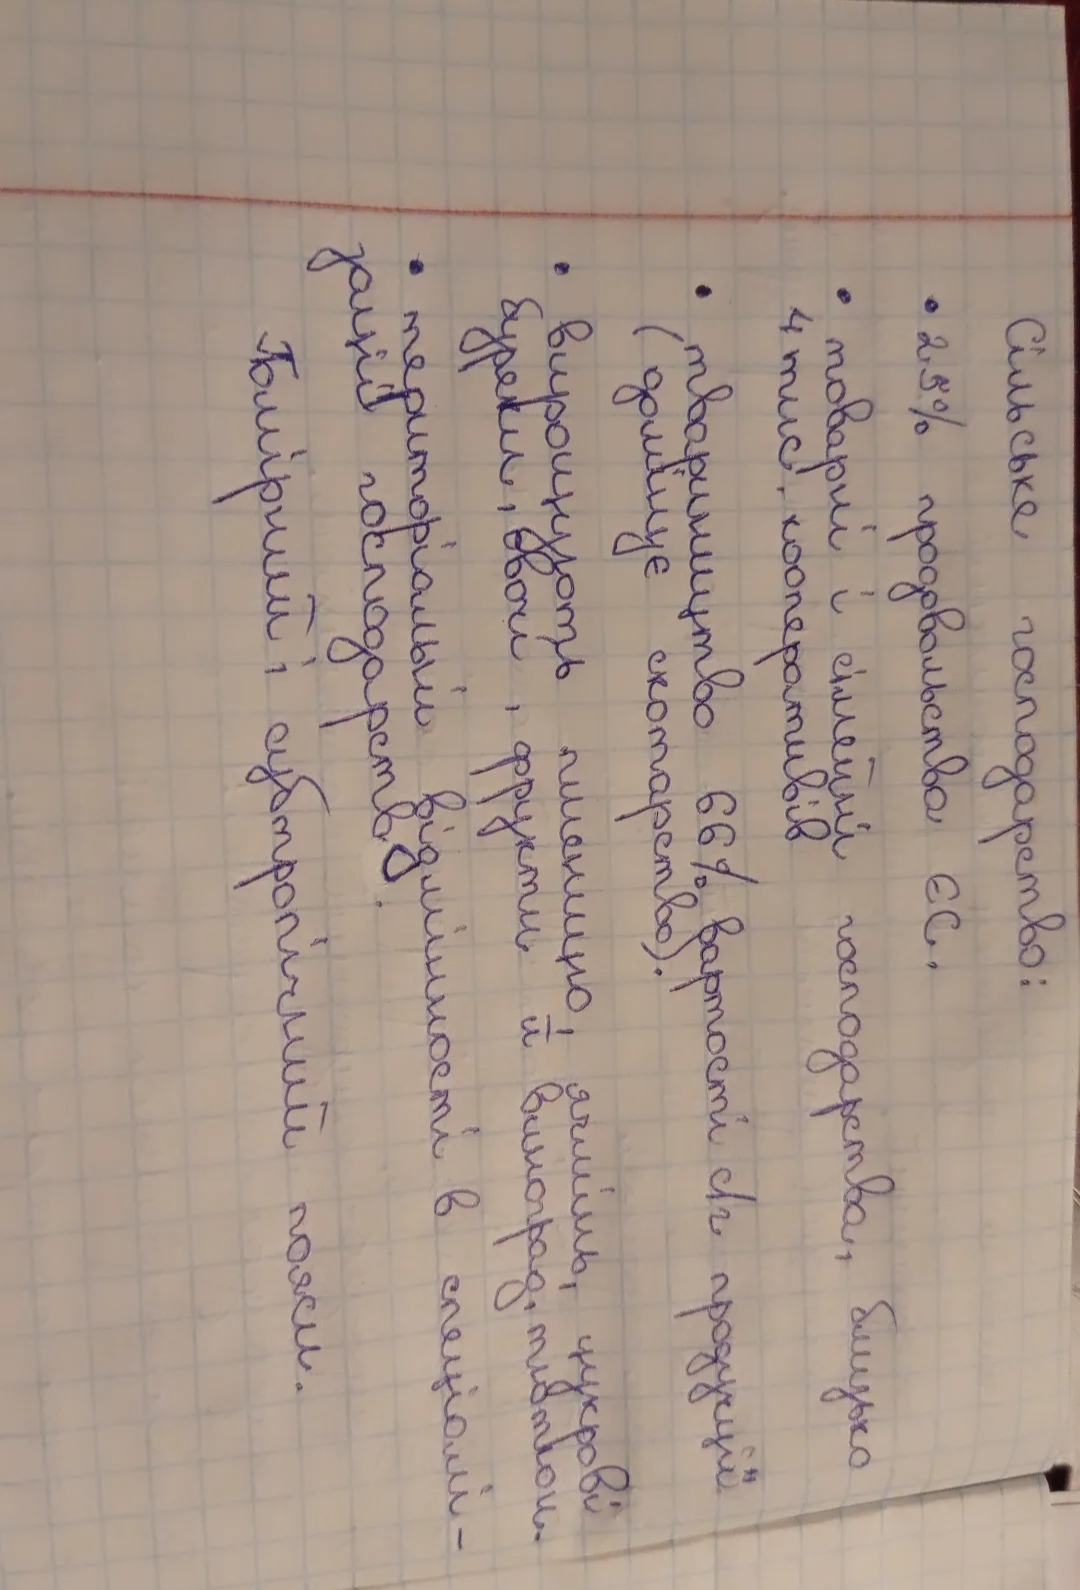 Сільське господарство:
• 25% продовольства ЄС.
• товарні і сімейні господарства, близько
4 тис. кооперативів
• тваринництво 66% вартості с/г продукції
(домінує скотарство).
• вирощують пшеницю, ячмінь, цукрові
буряки, овочі, фрукти й виноград, тютюн.
• територіальні відмінності в спеціалі-
зації господарства.
Помірний і субтропічний пояси.